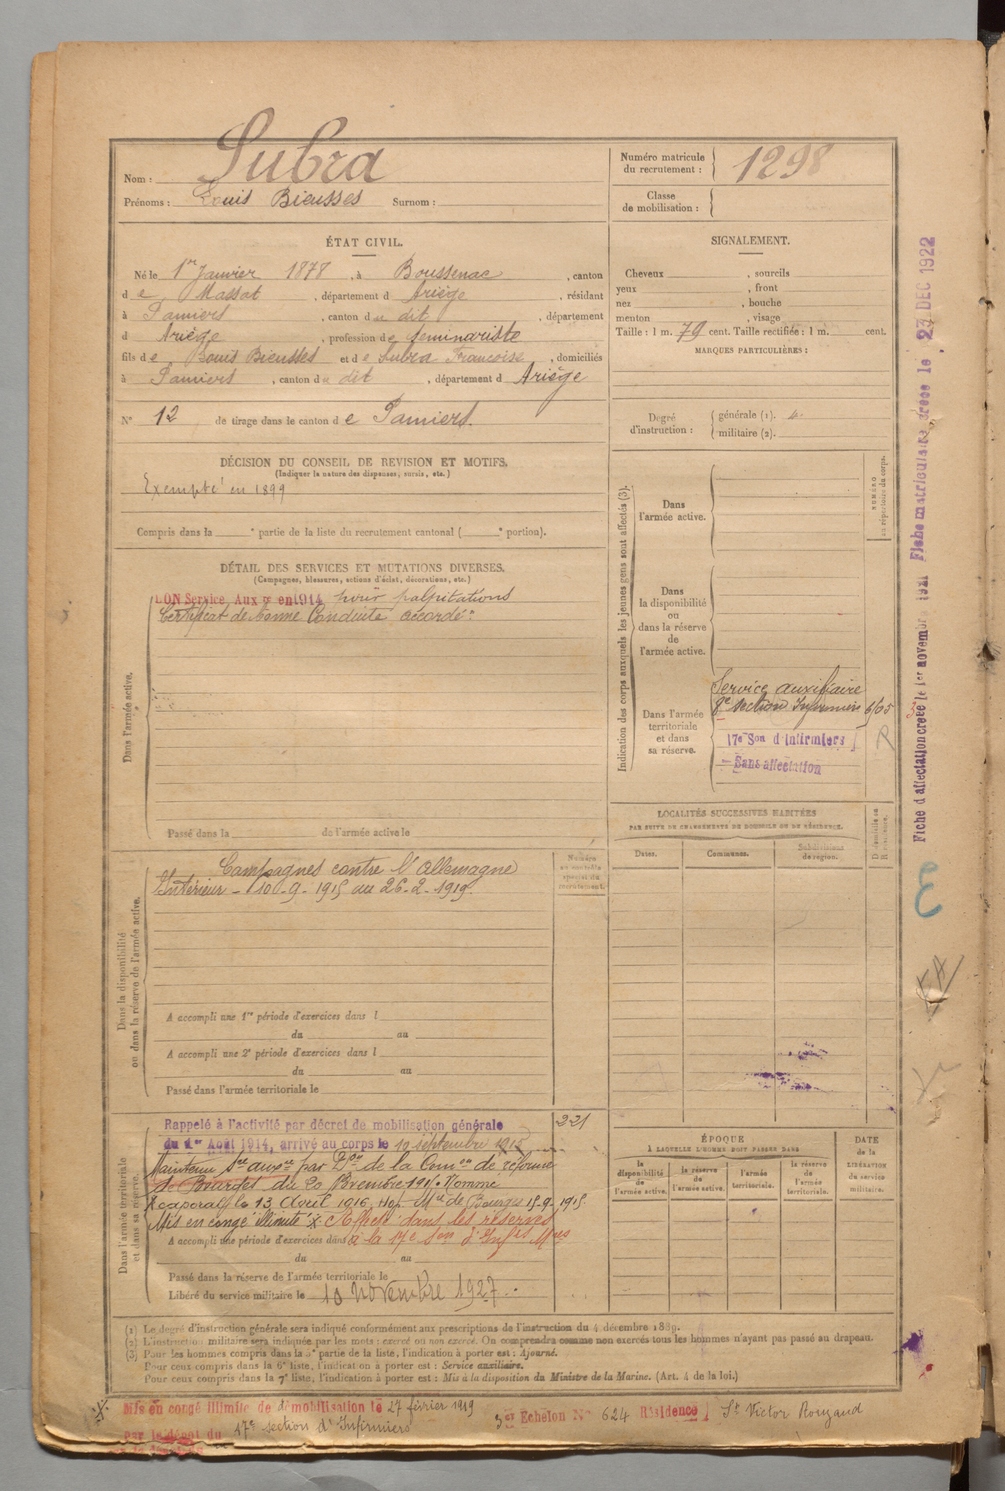 Nom : Subra
Prénoms : Louis Bieusses Surnom :
Numéro matricule du recrutement : 1298
Classe de mobilisation :
ÉTAT CIVIL.
Né le 1er Janvier 1878, à Boussenac, canton
de Massat, département d Ariège, résidant
à Pamiers, canton du dit, département
d Ariège, profession de séminariste
fils de Louis Bieusses et de Subra Françoise, domiciliés
à Pamiers, canton du dit, département d Ariège
N° 12 de tirage dans le canton de Pamiers.
DÉCISION DU CONSEIL DE REVISION ET MOTIFS.
(Indiquer la nature des dispenses, sursis, etc.)
Exempté en 1899
Compris dans la e partie de la liste du recrutement cantonal ( e portion).
SIGNALEMENT.
Cheveux , sourcils
yeux , front
nez , bouche
menton , visage
Taille : 1 m. 79 cent. Taille rectifiée : 1 m. cent.
MARQUES PARTICULIÈRES :
Degré d'instruction : générale (1).
militaire (2).
DÉTAIL DES SERVICES ET MUTATIONS DIVERSES.
(Campagnes, blessures, actions d'éclat, décorations, etc.)
Dans l'armée active.
BON Service Auxre en 1914 pour palpitations
Certificat de bonne Conduite accordé
Passé dans la de l'armée active le
Indication des corps auxquels les jeunes gens sont affectés (3).
NUMÉRO au répertoire du corps.
Dans l'armée active.
Dans la disponibilité ou dans la réserve de l'armée active.
Dans l'armée territoriale et dans sa réserve.
Service auxiliaire
section Infirmiers
17e Son d'Infirmiers
Sans affectation
Dans la disponibilité ou dans la réserve de l'armée active.
Campagnes contre l'Allemagne
Intérieur - 10-9-1915 au 26-2-1919.
Numéro au contrôle spécial du recrutement.
A accompli une 1re période d'exercices dans l
du au
A accompli une 2e période d'exercices dans l
du au
Passé dans l'armée territoriale le
LOCALITÉS SUCCESSIVES HABITÉES
PAR SUITE DE CHANGEMENTS DE DOMICILE OU DE RÉSIDENCE.
Dates. Communes. Subdivisions de région.
Dans l'armée territoriale et dans sa réserve.
Rappelé à l'activité par décret de mobilisation générale 221
du 1er Août 1914, arrivé au corps le 10 septembre 1915
Maintenu Sce auxre par Don de la Comon de réforme
de Bourges du 20 1915. Nommé
caporal le 13 Avril 1916. Hop. Mre de Bourges 15.9.1915
Mis en congé illimité X. Affecté dans les réserves
à la 17e Son d'Infres Mres
A accompli une période d'exercices dans
du au
Passé dans la réserve de l'armée territoriale le
Libéré du service militaire le 10 novembre 1927.
ÉPOQUE
À LAQUELLE L'HOMME DOIT PASSER DANS
la disponibilité de l'armée active.
la réserve de l'armée active.
l'armée territoriale.
la réserve de l'armée territoriale.
DATE de la LIBÉRATION du service militaire.
(1) Le degré d'instruction générale sera indiqué conformément aux prescriptions de l'instruction du 4 décembre 1889.
(2) L'instruction militaire sera indiquée par les mots : exercé ou non exercé. On comprendra comme non exercés tous les hommes n'ayant pas passé au drapeau.
(3) Pour les hommes compris dans la 5e partie de la liste, l'indication à porter est : Ajourné.
Pour ceux compris dans la 6e liste, l'indication à porter est : Service auxiliaire.
Pour ceux compris dans la 7e liste, l'indication à porter est : Mis à la disposition du Ministre de la Marine. (Art. 4 de la loi.)
X. Mis en congé illimité de démobilisation le 27 février 1919
par le dépôt du 17e section d'Infirmiers
3e Echelon N° 624 Résidence St Victor Rouzaud
Fiche d'affectation créée le 1er novembre 1921 Fiche matriculaire créée le 23 DEC 1922
3